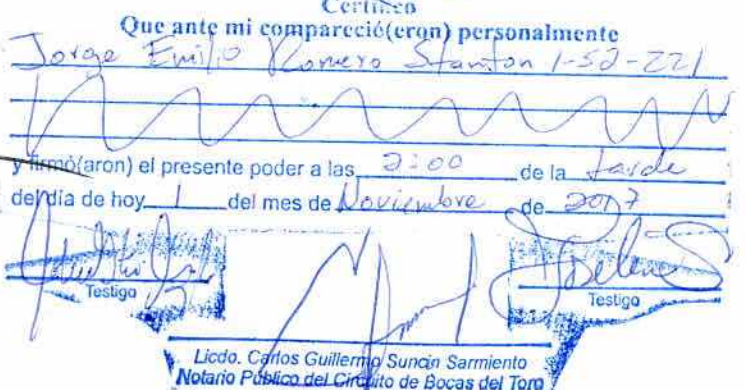 Certifico
Que ante mi compareció(eron) personalmente
Jorge Emilio Romero Stanton 1-52-221
y firmó(aron) el presente poder a las 2:00 de la tarde
del día de hoy 1 del mes de Noviembre de 2017
Testigo Testigo
Licdo. Carlos Guillermo Suncin Sarmiento
Notario Público del Circuito de Bocas del Toro